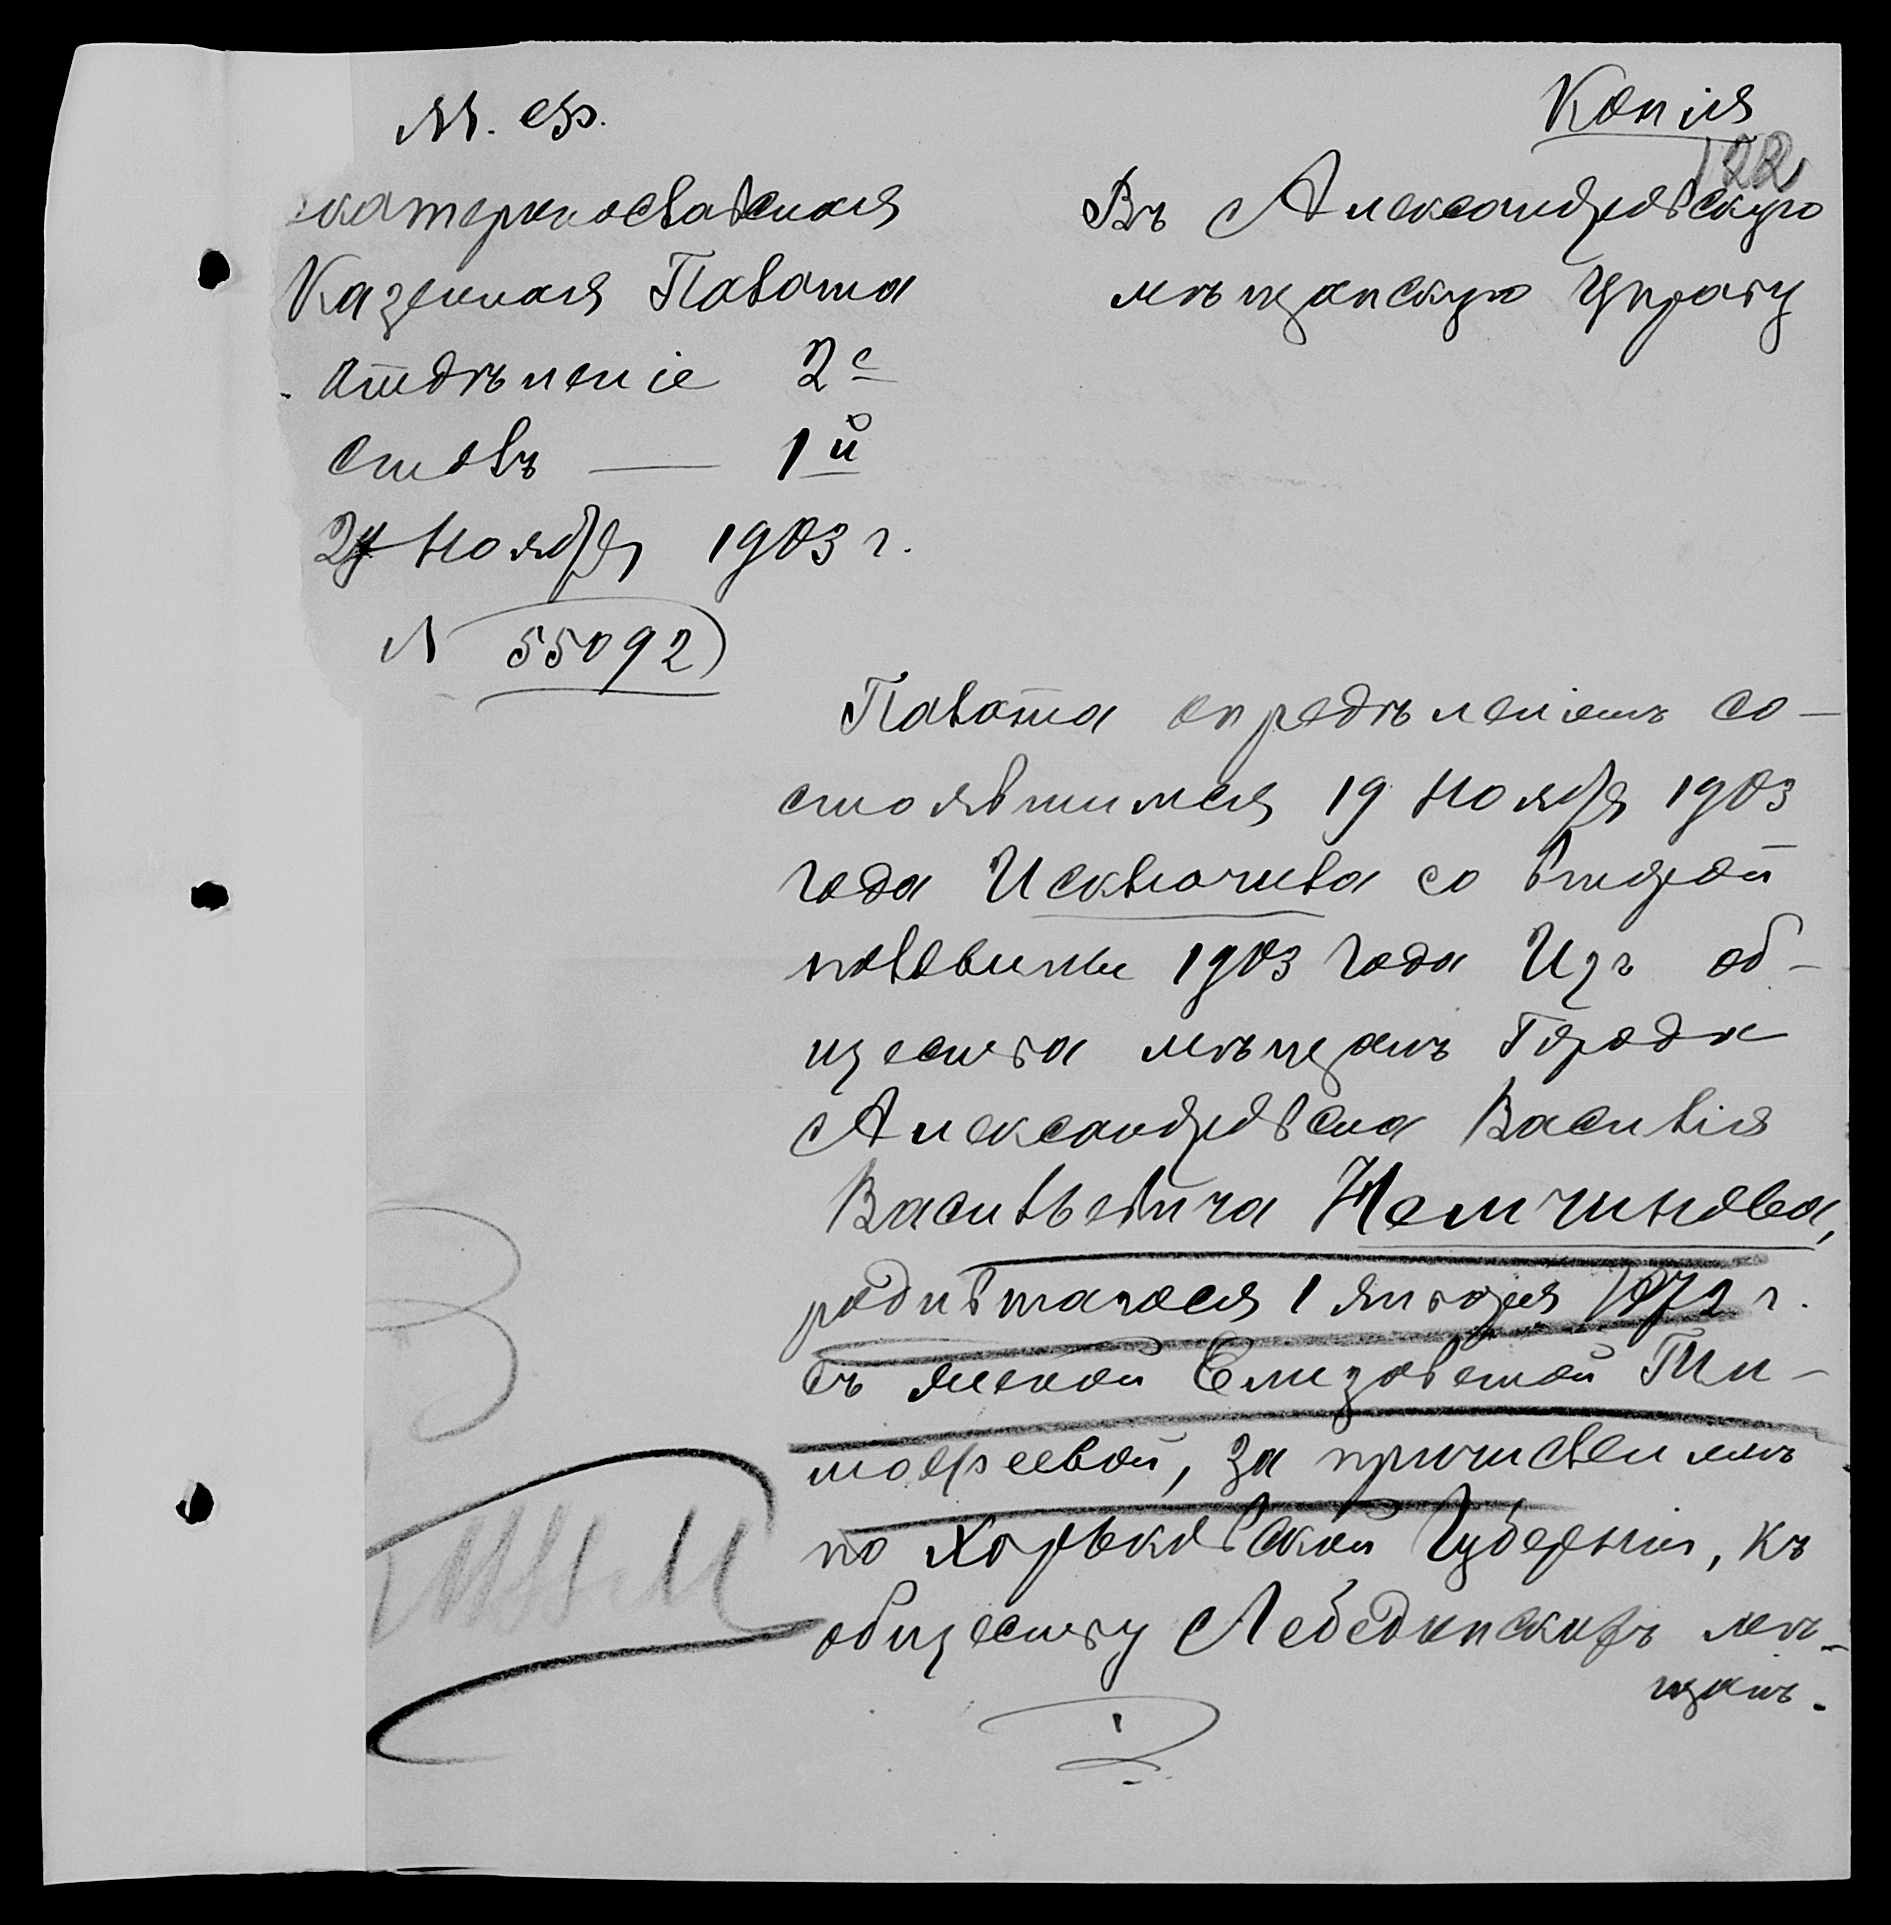 Копія
М. Ф.
122
катеринославская
Казенная Палата
Отдѣленіе 2е
столъ — 1й
24 Ноября 1903 г.
N 55092
Въ Александровскую
мѣщанскую Управу
Палата опредѣленіемъ со-
стоявшимся 19 Ноября 1903
года Исключила со второй
половины 1903 года Изъ об-
щества мѣщанъ Города
Александровска Василія
Васильевича Немчинова,
родившагося 1 января 1872 г.
съ женой Елизаветой Ти-
мофеевой, за причисленіемъ
по Харьковской Губерніи, къ
обществу Лебединскихъ мѣ-
щанъ.